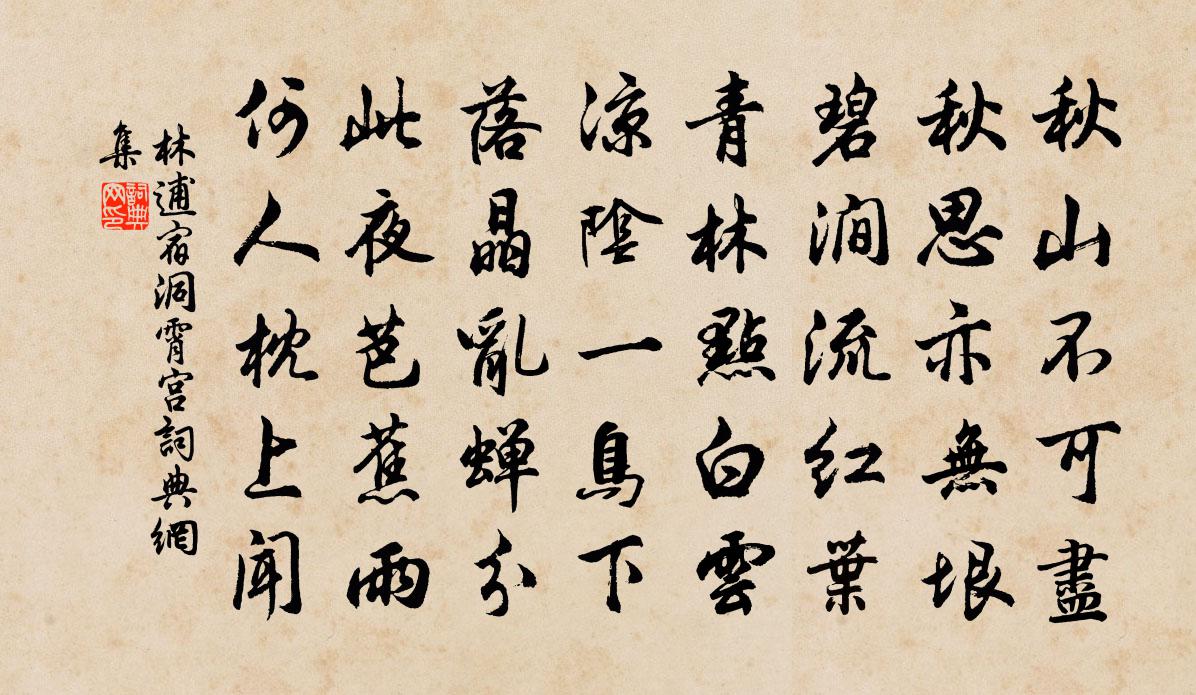 秋山不可盡
秋思亦無垠
碧澗流红葉
青林點白雲
凉陰一鳥下
落晶亂蝉分
此夜芭蕉雨
何人枕上聞
林逋宿洞霄宫詞典網
集
詞典
网印